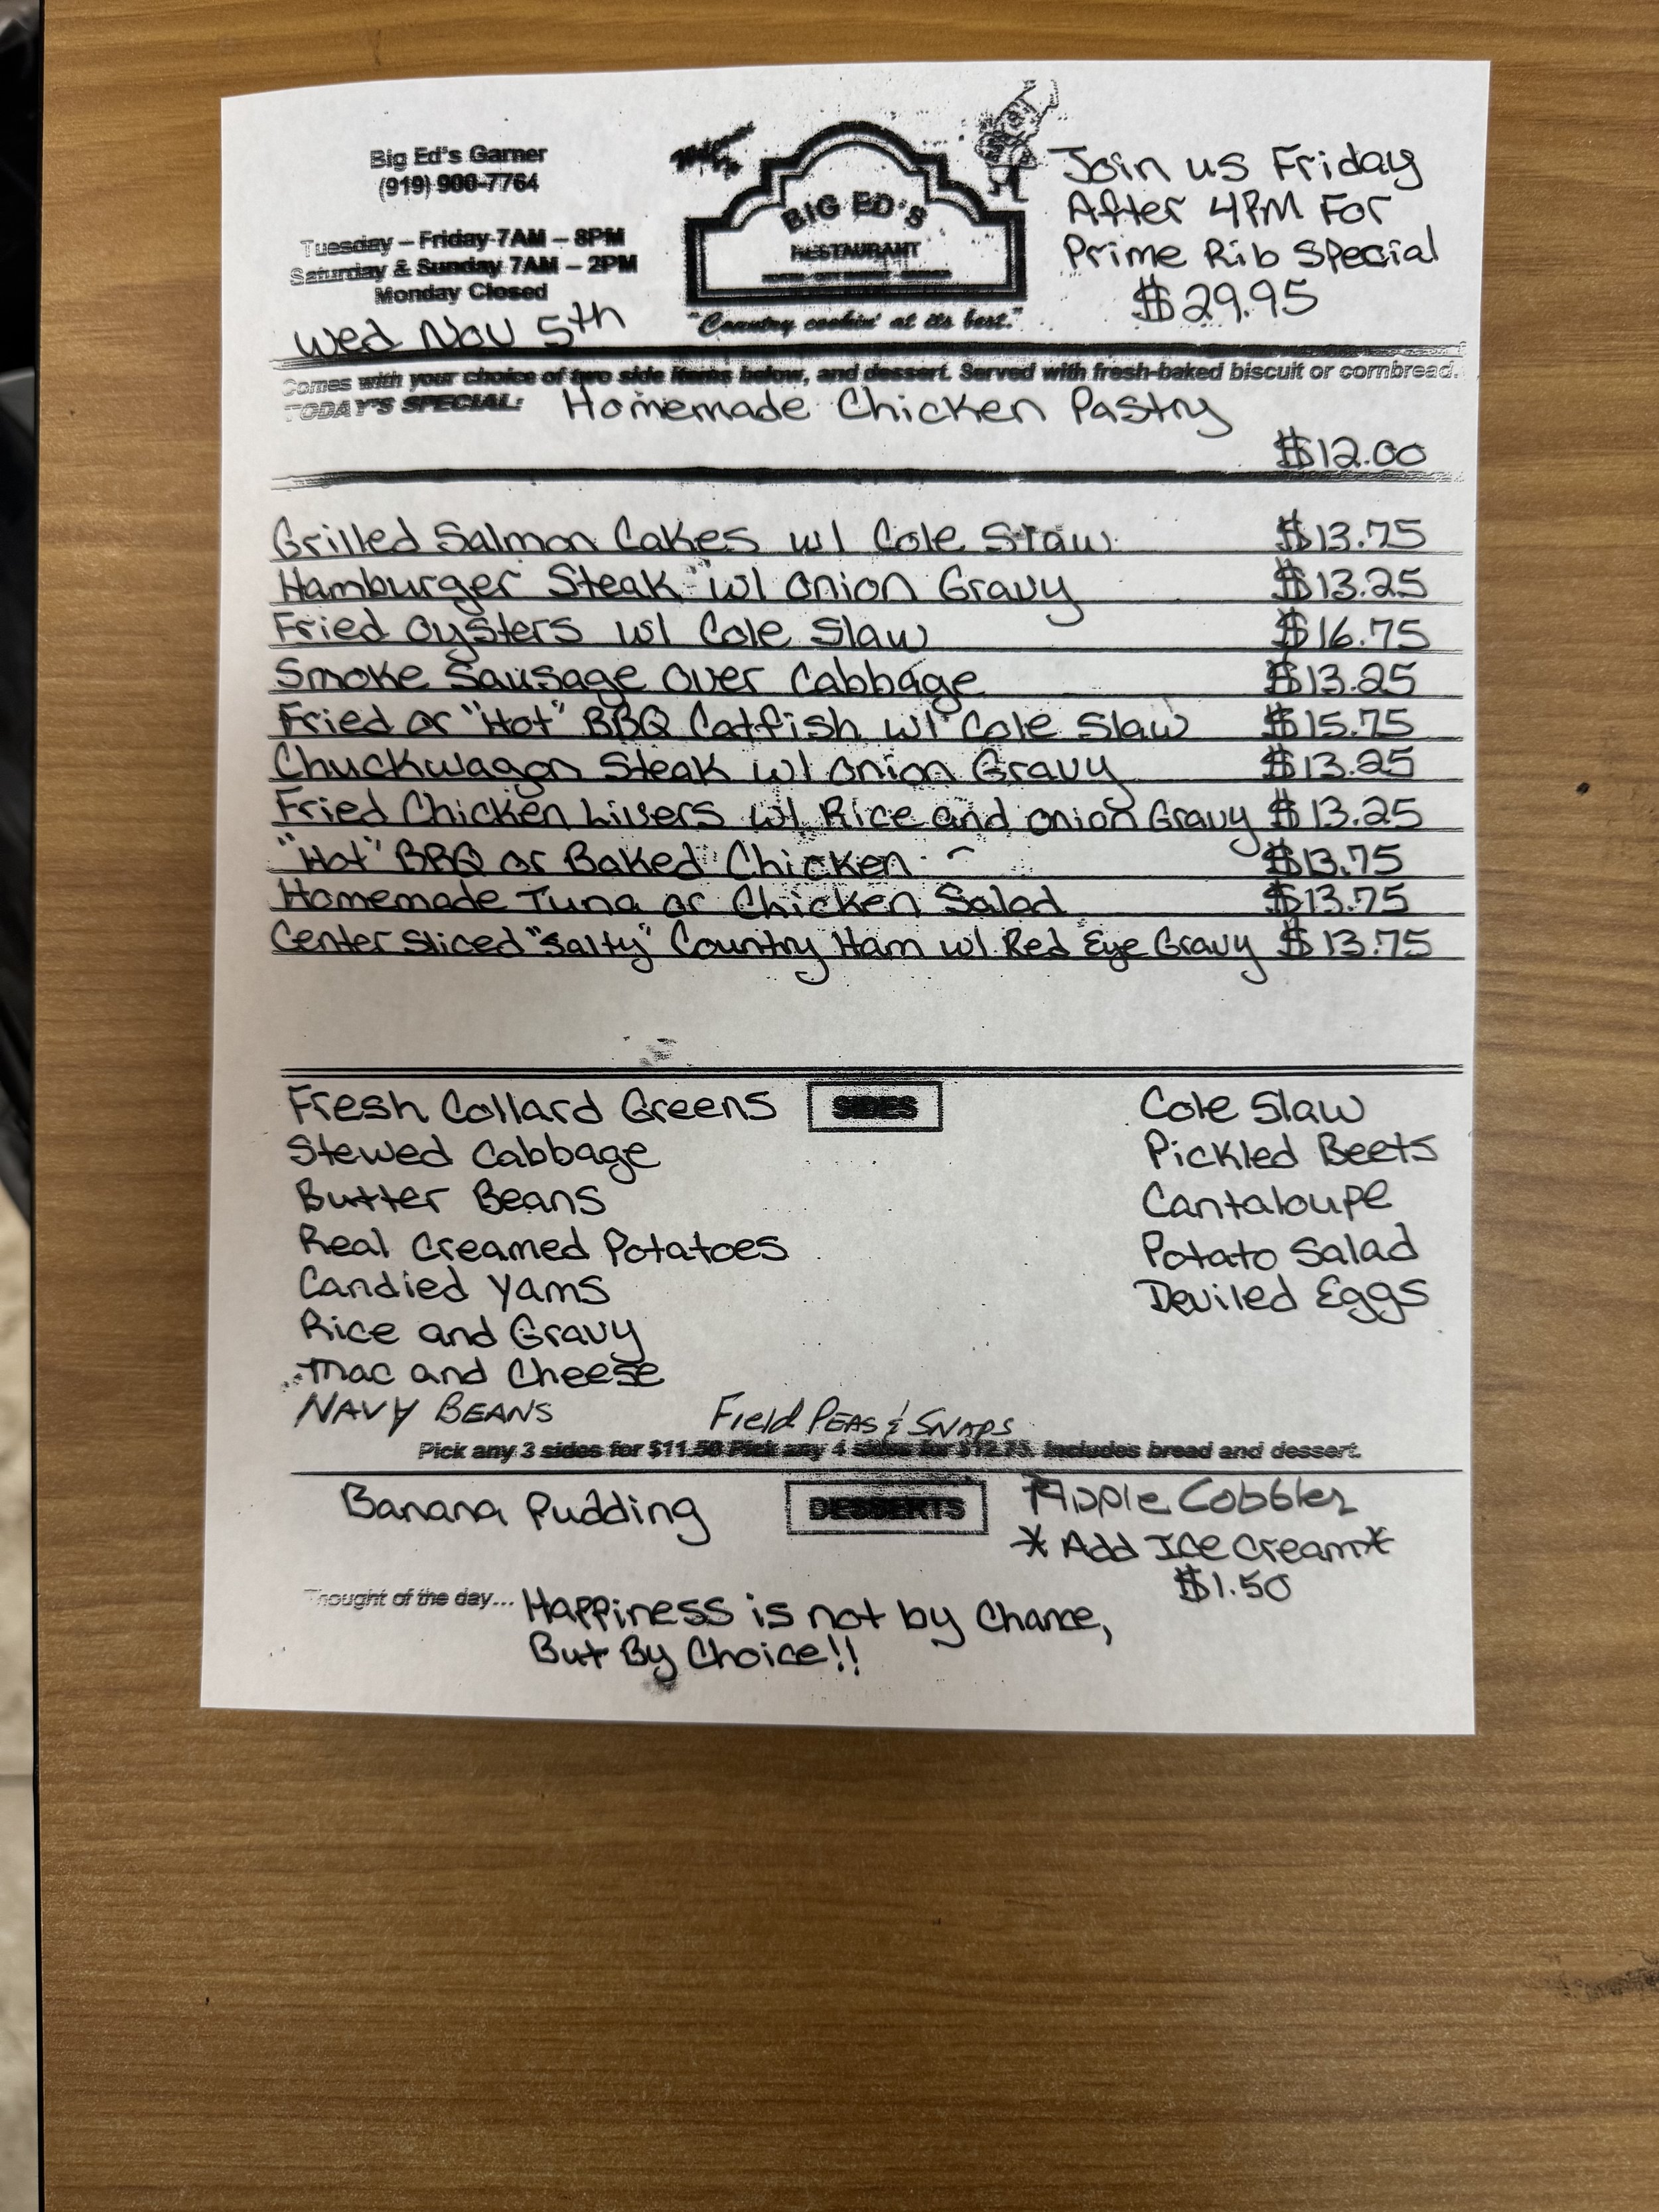 Big Ed's Garner
(919) 900-7764
Tuesday – Friday 7AM – 8PM
Saturday & Sunday 7AM – 2PM
Monday Closed
Wed Nov 5th
BIG ED'S
RESTAURANT
"Country cookin' at its best."
Join us Friday
After 4PM For
Prime Rib Special
$29.95
Comes with your choice of two side items below, and dessert. Served with fresh-baked biscuit or cornbread.
TODAY'S SPECIAL: Homemade Chicken Pastry
$12.00
Grilled Salmon Cakes w/ Cole Slaw $13.75
Hamburger Steak w/ Onion Gravy $13.25
Fried Oysters w/ Cole Slaw $16.75
Smoke Sausage Over Cabbage $13.25
Fried or "Hot" BBQ Catfish w/ Cole Slaw $15.75
Chuckwagon Steak w/ Onion Gravy $13.25
Fried Chicken Livers w/ Rice and Onion Gravy $13.25
"Hot" BBQ or Baked Chicken $13.75
Homemade Tuna or Chicken Salad $13.75
Center Sliced "Salty" Country Ham w/ Red Eye Gravy $13.75
SIDES
Fresh Collard Greens
Stewed Cabbage
Butter Beans
Real Creamed Potatoes
Candied Yams
Rice and Gravy
Mac and Cheese
NAVY BEANS
Field PEAS & SNAPS
Cole Slaw
Pickled Beets
Cantaloupe
Potato Salad
Deviled Eggs
Pick any 3 sides for $11.50 Pick any 4 sides for $12.75. Includes bread and dessert.
DESSERTS
Banana Pudding
Apple Cobbler
*Add Ice Cream*
$1.50
Thought of the day... Happiness is not by Chance,
But By Choice!!